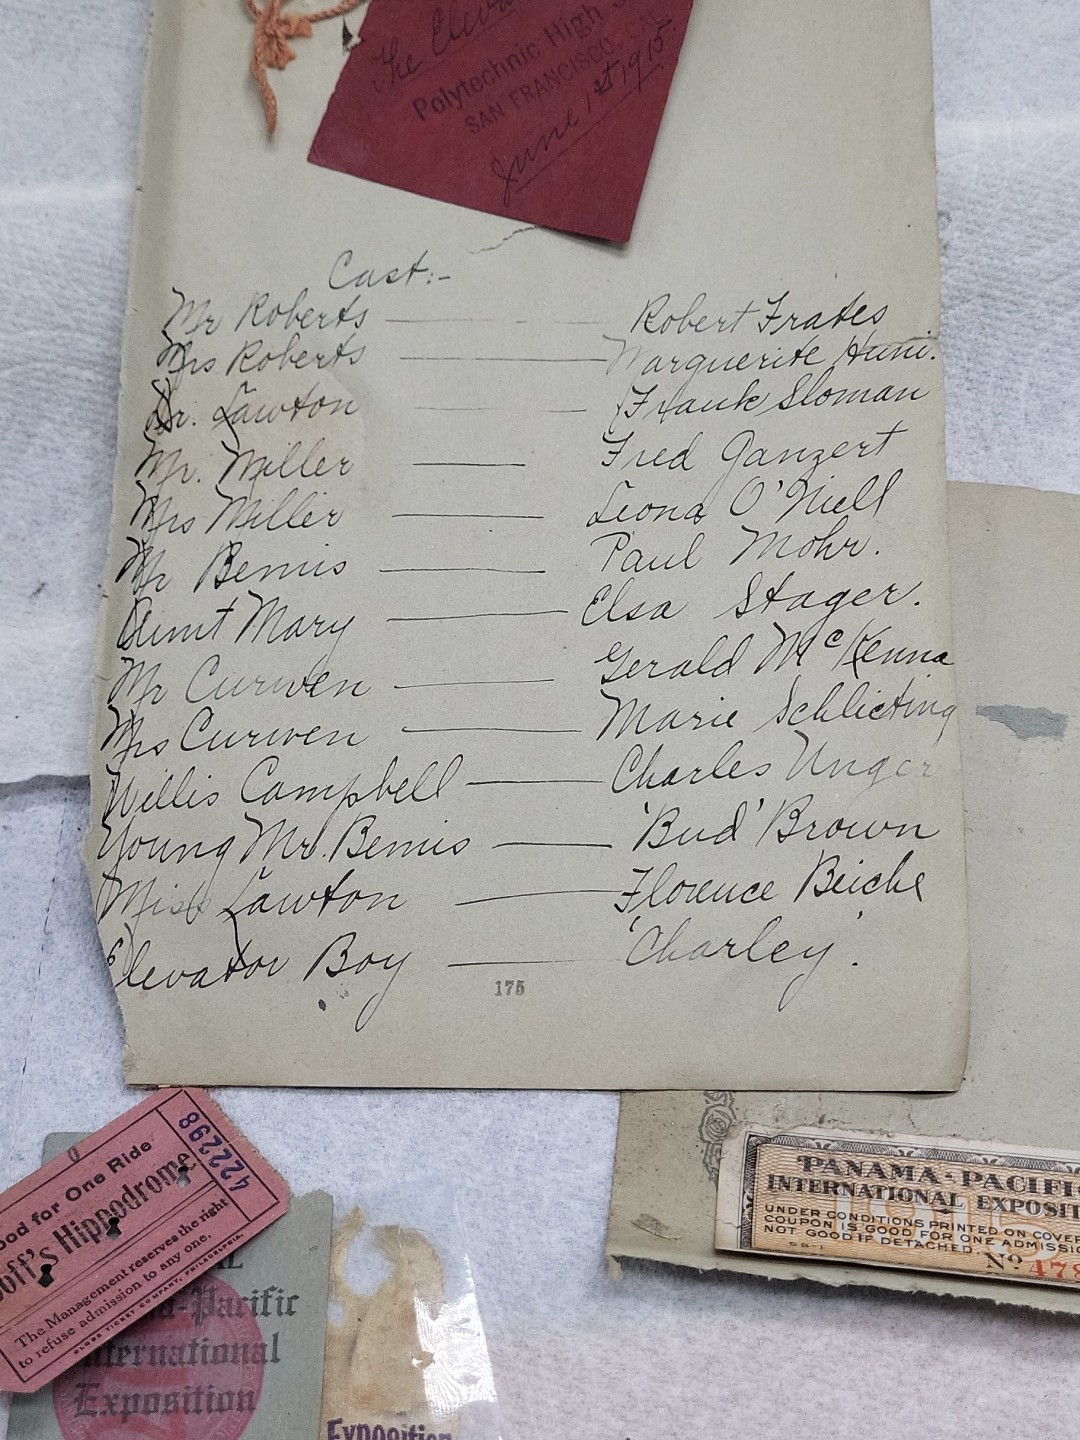 The
Polytechnic High
SAN FRANCISCO, CAL.
June 1st 1915.
Cast:-
Mr Roberts — Robert Frates
Mrs Roberts — Marguerite Huni.
Dr. Lawton — Frank Sloman
Mr. Miller — Fred Ganzert
Mrs Miller — Leona O'Niell
Mr Bemis — Paul Mohr.
Aunt Mary — Elsa Stager.
Mr Curwen — Gerald McKenna
Mrs Curwen — Marie Schlicting
Willis Campbell — Charles Unger
Young Mr. Bemis — 'Bud' Brown
Miss Lawton — Florence Beiche
Elevator Boy — 'Charley'.
175
422298
ood for One Ride
off's Hippodrome
The Management reserves the right
to refuse admission to any one.
GLOBE TICKET COMPANY, PHILADELPHIA.
-Pacific
International
Exposition
Exposition
PANAMA-PACIFIC
INTERNATIONAL EXPOSIT
UNDER CONDITIONS PRINTED ON COVER
COUPON IS GOOD FOR ONE ADMISSIO
NOT GOOD IF DETACHED.
No 478